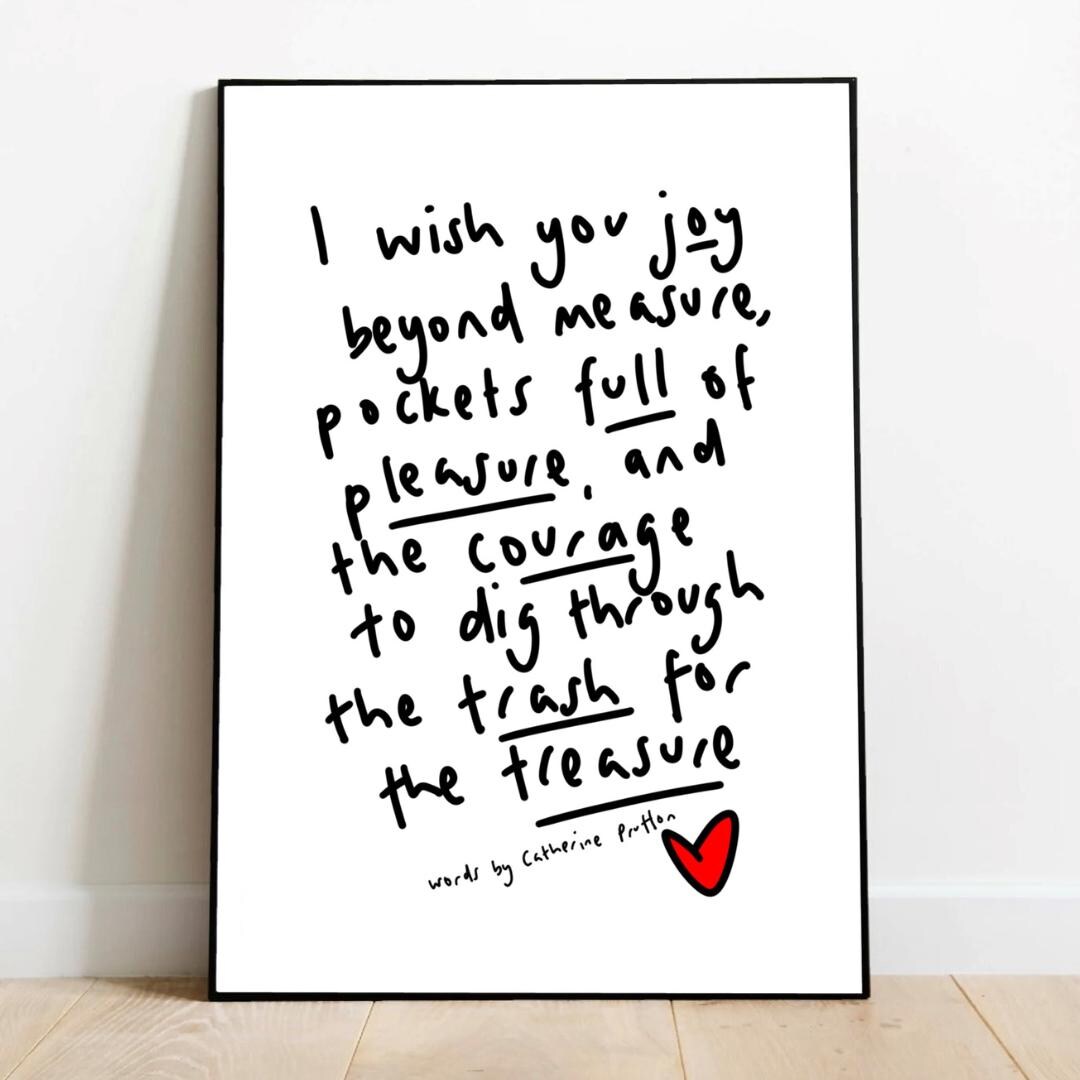 I wish you joy
beyond measure,
pockets full of
pleasure, and
the courage
to dig through
the trash for
the treasure
words by Catherine Prutton